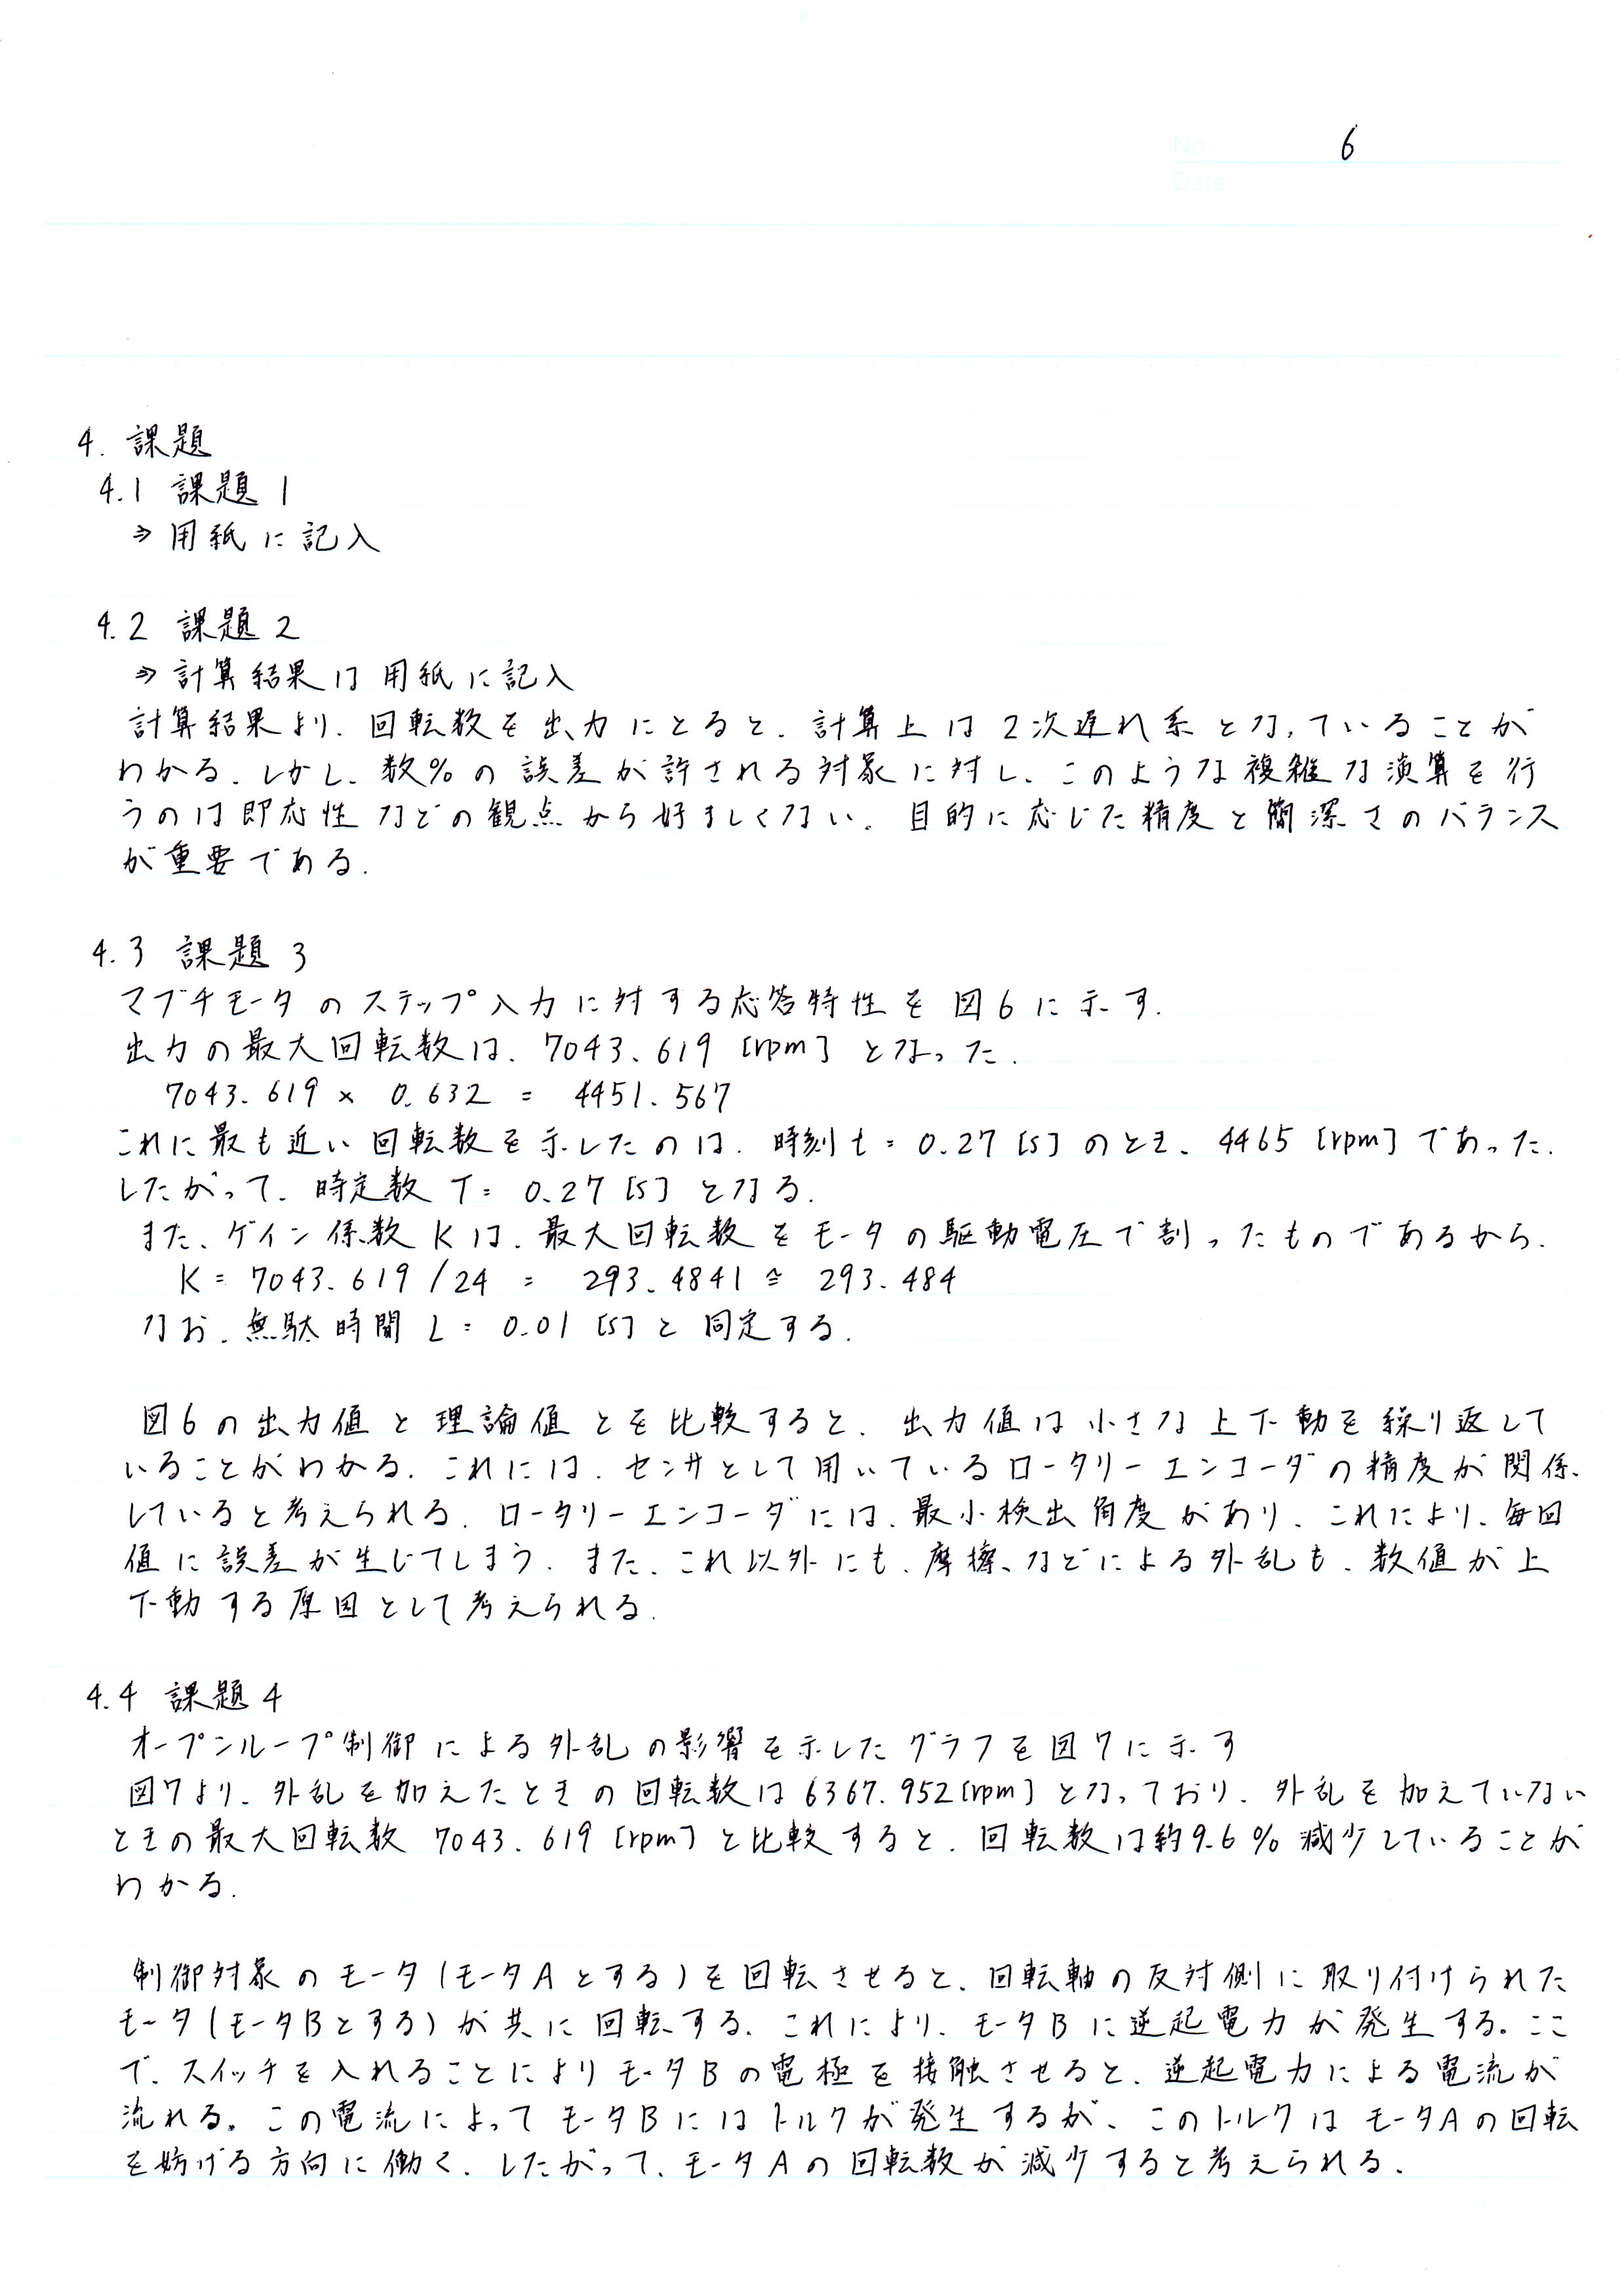 No. 6
Date
4. 課題
4.1 課題1
⇒ 用紙に記入
4.2 課題2
⇒ 計算結果は用紙に記入
計算結果より、回転数を出力にとると、計算上は2次遅れ系となっていることが
わかる。しかし、数%の誤差が許される対象に対し、このような複雑な演算を行
うのは即応性などの観点から好ましくない。目的に応じた精度と簡潔さのバランス
が重要である。
4.3 課題3
マブチモータのステップ入力に対する応答特性を図6に示す.
出力の最大回転数は、7043.619 [rpm] となった.
7043.619 × 0.632 = 4451.567
これに最も近い回転数を示したのは、時刻t = 0.27 [s] のとき、4465 [rpm] であった.
したがって、時定数 T = 0.27 [s] となる.
また、ゲイン係数 K は、最大回転数をモータの駆動電圧で割ったものであるから、
K = 7043.619 / 24 = 293.4841 ≅ 293.484
なお、無駄時間 L = 0.01 [s] と同定する.
図6の出力値と理論値とを比較すると、出力値は小さな上下動を繰り返して
いることがわかる. これには、センサとして用いているロータリーエンコーダの精度が関係
していると考えられる. ロータリーエンコーダには、最小検出角度があり、これにより、毎回
値に誤差が生じてしまう. また、これ以外にも、摩擦などによる外乱も、数値が上
下動する原因として考えられる.
4.4 課題4
オープンループ制御による外乱の影響を示したグラフを図7に示す
図7より、外乱を加えたときの回転数は6367.952[rpm] となっており、外乱を加えていない
ときの最大回転数 7043.619 [rpm] と比較すると、回転数は約9.6%減少していることが
わかる.
制御対象のモータ(モータAとする)を回転させると、回転軸の反対側に取り付けられた
モータ(モータBとする)が共に回転する. これにより、モータBに逆起電力が発生する。ここ
で、スイッチを入れることによりモータBの電極を接触させると、逆起電力による電流が
流れる。この電流によってモータBにはトルクが発生するが、このトルクはモータAの回転
を妨げる方向に働く. したがって、モータAの回転数が減少すると考えられる.